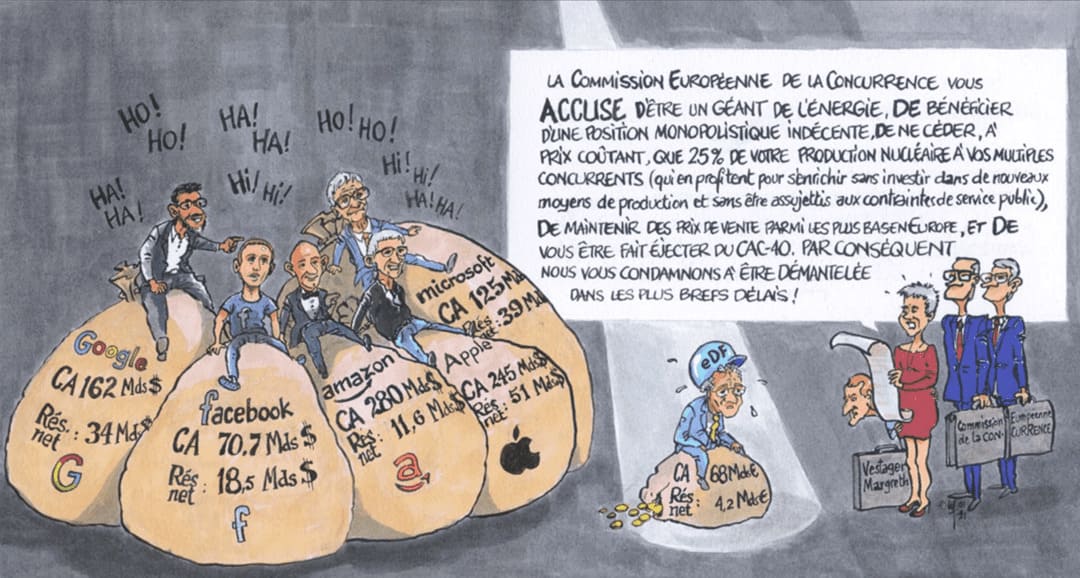 LA COMMISSION EUROPÉENNE DE LA CONCURRENCE VOUS
ACCUSE D'ÊTRE UN GÉANT DE L'ÉNERGIE, DE BÉNÉFICIER
D'UNE POSITION MONOPOLISTIQUE INDÉCENTE, DE NE CÉDER, À
PRIX COÛTANT, QUE 25% DE VOTRE PRODUCTION NUCLÉAIRE À VOS MULTIPLES
CONCURRENTS (qui en profitent pour s'enrichir sans investir dans de nouveaux
moyens de production et sans être assujettis aux contraintes de service public),
DE MAINTENIR DES PRIX DE VENTE PARMI LES PLUS BAS EN EUROPE, ET DE
VOUS ÊTRE FAIT ÉJECTER DU CAC-40. PAR CONSÉQUENT
NOUS VOUS CONDAMNONS À ÊTRE DÉMANTELÉE
DANS LES PLUS BREFS DÉLAIS !
HO!
HO!
HA!
HA!
HO! HO!
HA!
HA!
Hi! Hi!
Hi! Hi!
HA! HA!
Google
CA 162 Mds $
Rés. net : 34 Mds $
G
f
facebook
CA 70.7 Mds $
Rés net : 18,5 Mds $
f
amazon
CA 280 Mds $
Rés net : 11,6 Mds $
a
Apple
CA 245 Mds $
Rés net : 51 Mds $
microsoft
CA 125 Mds
Rés net : 39 Mds
eDF
CA 68 Mds €
Rés net : 4,2 Mds €
Vestager
Margreth
Commission
de la CON-
Européenne
CURRENCE